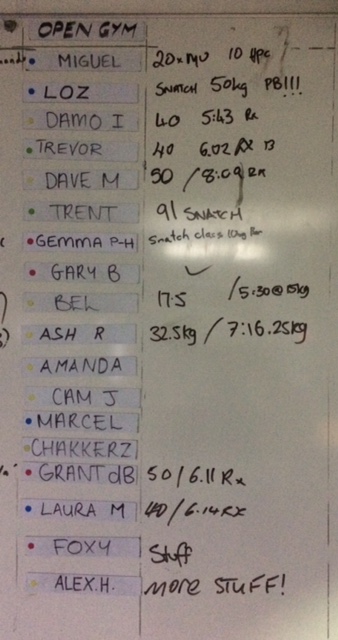 OPEN GYM
MIGUEL 20xMU 10 HPC
LOZ SNATCH 50kg PB!!!
DAMO I 40 5:43 Rx
TREVOR 40 6.02 RX
DAVE M 50 / 8:09 RX
TRENT 91 SNATCH
GEMMA P-H Snatch class 10kg Bar
GARY B ✓
BEL 17.5 /5:30@15kg
ASH R 32.5kg / 7:16.25kg
AMANDA
CAM J
MARCEL
CHAKKERZ
GRANT dB 50 / 6.11 Rx
LAURA M 40 / 6.14 RX
FOXY Stuff
ALEX.H. MORE STUFF!